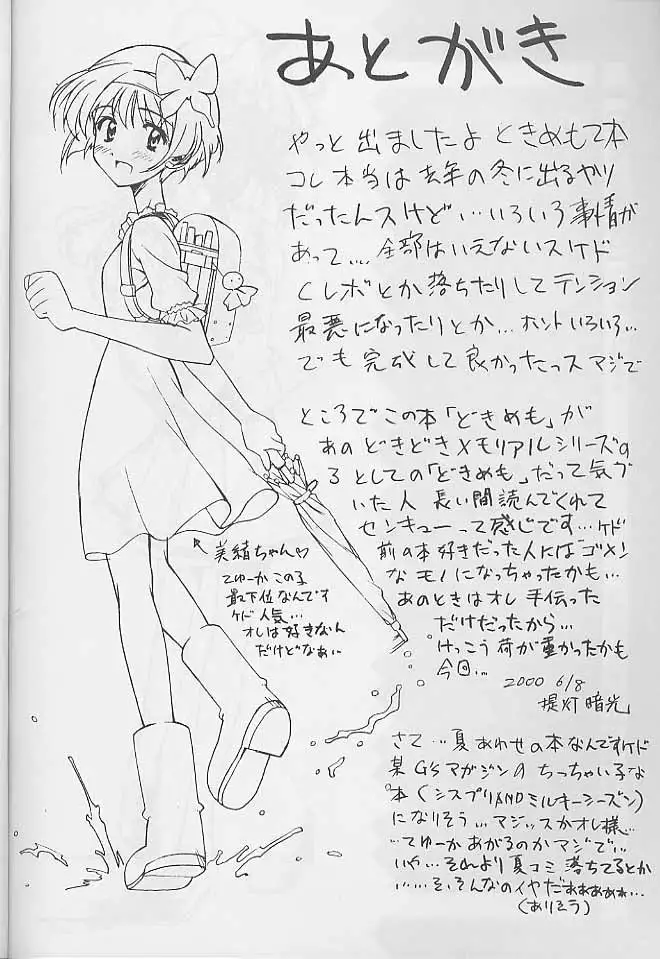 あとがき
やっと出ましたよ ときめもて本
コレ本当は去年の冬に出るやり
だったんスけど…いろいろ事情が
あって…。全部はいえないスケド
Cレボとか落ちたりしてテンション
最悪になったりとか…ホントいろいろ…
でも完成して良かったっスマジで
ところでこの本「どきめも」が
あのどきどきメモリアルシリーズの
3としての「どきめも」だって気づ
いた人 長い間読んでくれて
センキューって感じです…ケド
前の本好きだった人には「ゴメン」
なモノになっちゃったかも…
あのときはオレ手伝った
だけだったから…
けっこう荷が重かったかも
今回…
2000 6/8
提灯暗光
↖美緒ちゃん♡
てゆーかこの子
最下位なんです
ケド人気…
オレは好きなん
だけどなぁ…
さて…夏あわせの本なんですケド
某G'sマガジンのちっちゃい子な
本(シスプリANDミルキーシーズン)
になりそう…マジッスかオレ様…
…てゆーかあがるのかマジで…
いや…それより夏コミ落ちてるとか
……そ、そんなのイヤだぁぁぁぁぁ…
(ありそう)